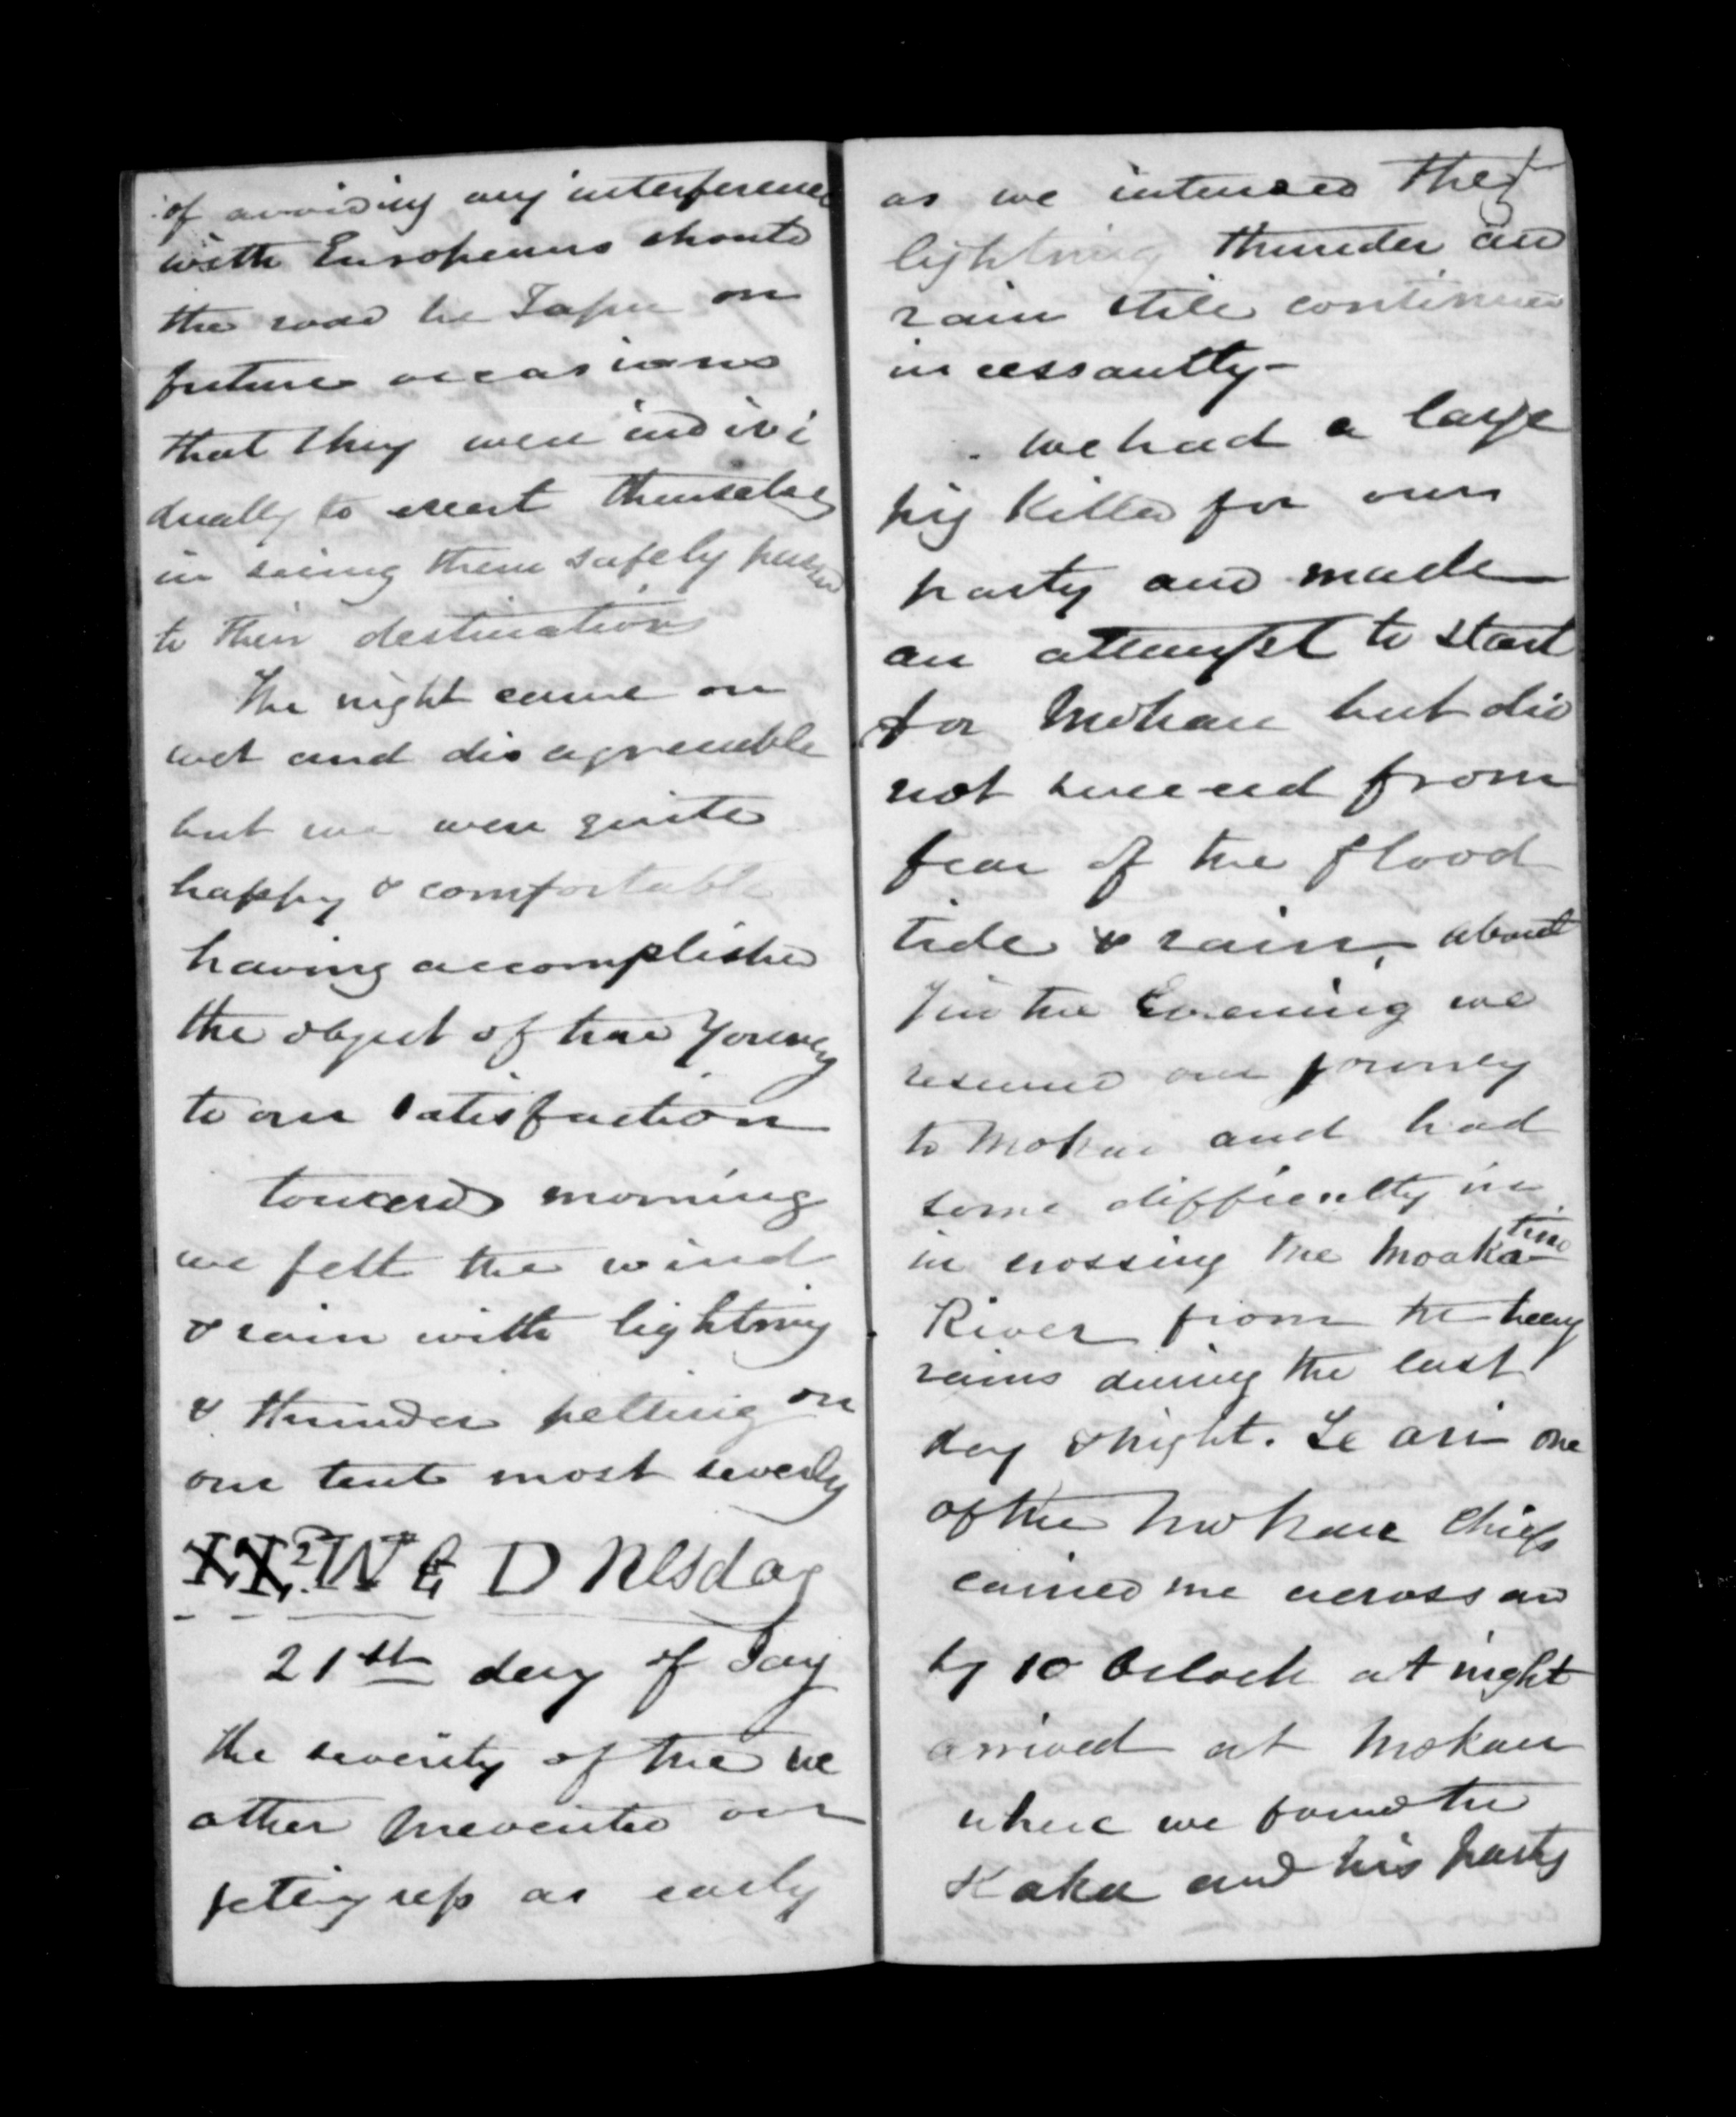 of avoiding any interference
with Europeans should
the road be Tapu on
future occasions
that they were indivi
dually to exert themselves
in seing them safely passed
to their destinations
The night came on
wet and disagreeable
but we were quite
happy & comfortable
having accomplished
the object of the Journey
to our satisfaction
towards morning
we felt the wind
& rain with lightning
& thunder pelting on
our tent most severely
WEDnesday
21st day of
the severity of the we
ather prevented our
geting up as early
as we intended the
lightning thunder and
rain still continued
incessantly-
we had a large
pig killed for our
party and made
an attempt to start
for Mokau but did
not succeed from
fear of the flood
tide & rain, about
7 in the Evening we
resumed our journey
to Mokau and had
some difficulty in
in crossing the Moakatino
River from the heavy
rains during the last
day & night. Te ari one
of the Mokau Chiefs
carried me across and
by 10 Oclock at night
arrived at Mokau
where we found the
Kaka and his party